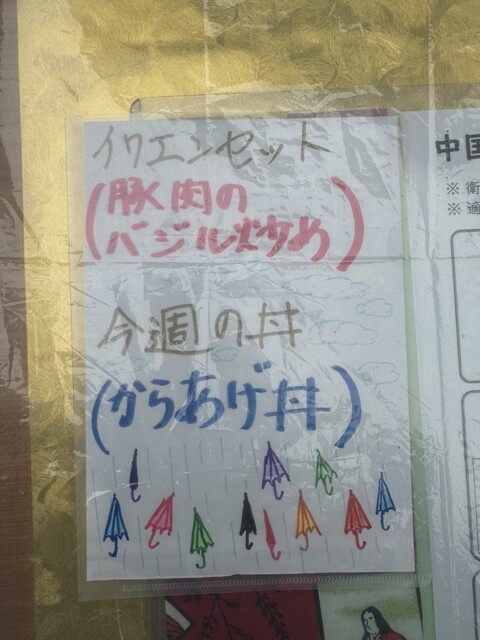 イワエンセット
(豚肉の
バジル炒め)
今週の丼
(からあげ丼)
中国
※ 衛
※ 適